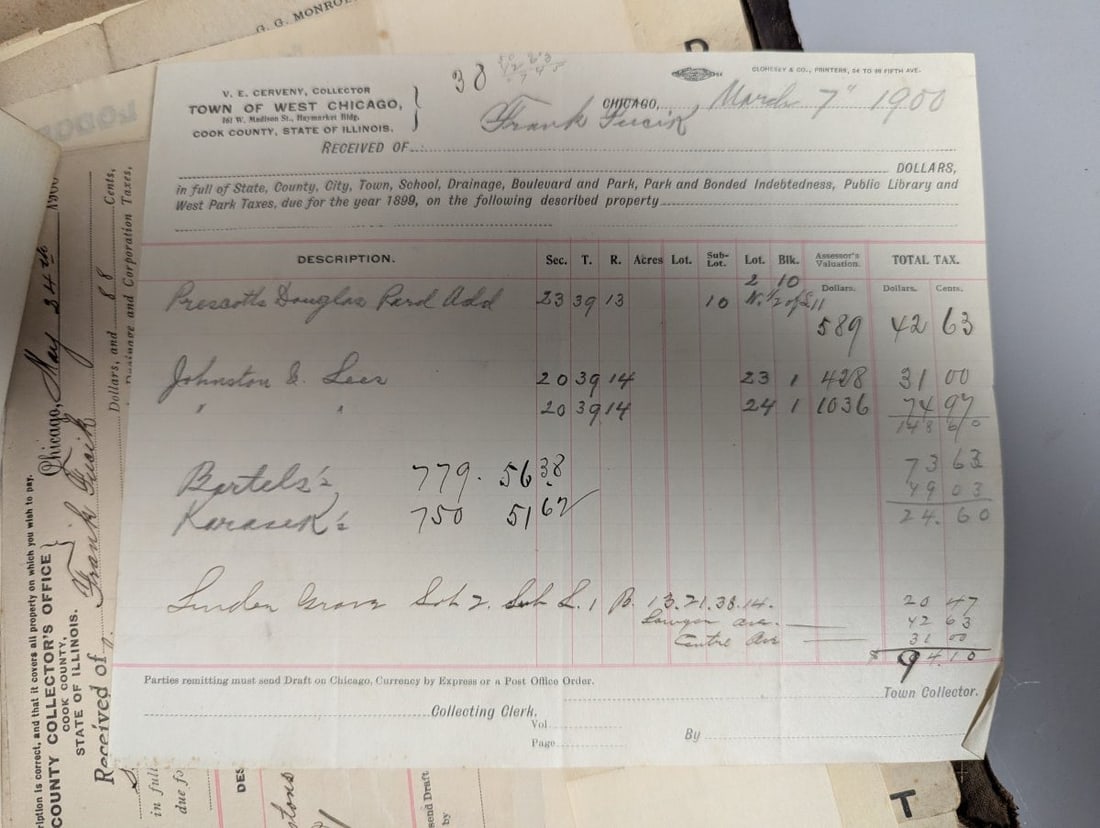 G. G. MONROE
38
CLOHESEY & CO., PRINTERS, 54 TO 98 FIFTH AVE.
V. E. CERVENY, COLLECTOR
TOWN OF WEST CHICAGO,
161 W. Madison St., Haymarket Bldg.
COOK COUNTY, STATE OF ILLINOIS.
CHICAGO, March 7" 1900
Frank Fucik
RECEIVED OF
DOLLARS,
in full of State, County, City, Town, School, Drainage, Boulevard and Park, Park and Bonded Indebtedness, Public Library and
West Park Taxes, due for the year 1899, on the following described property
DESCRIPTION. Sec. T. R. Acres Lot. Sub-Lot. Lot. Blk. Assessor's Valuation. TOTAL TAX.
2 10 Dollars. Dollars. Cents.
Prescotts Douglas Park Add 23 39 13 10 N. 1/2 of S. 11
589 42 63
Johnston & Lees 20 39 14 23 1 428 31 00
" " 20 39 14 24 1 1036 74 97
148 60
Bartels's 779. 56 38 73 63
49 03
Karasek's 750 51 62 24.60
Linden Grove Sub 2. Sub L. 1 B. 13.21.38.14. 20 47
Sawyer ave. 42 63
Centre Ave 31 00
$ 94.10
Parties remitting must send Draft on Chicago, Currency by Express or a Post Office Order.
Town Collector.
Collecting Clerk.
Vol
Page
By
ription is correct, and that it covers all property on which you wish to pay.
COUNTY COLLECTOR'S OFFICE
COOK COUNTY,
STATE OF ILLINOIS.
Chicago, May 24th 1900
Received of Frank Fucik
Dollars, and 88 Cents,
and Corporation Taxes,
in full
due fo
DES
send Draft
by
T